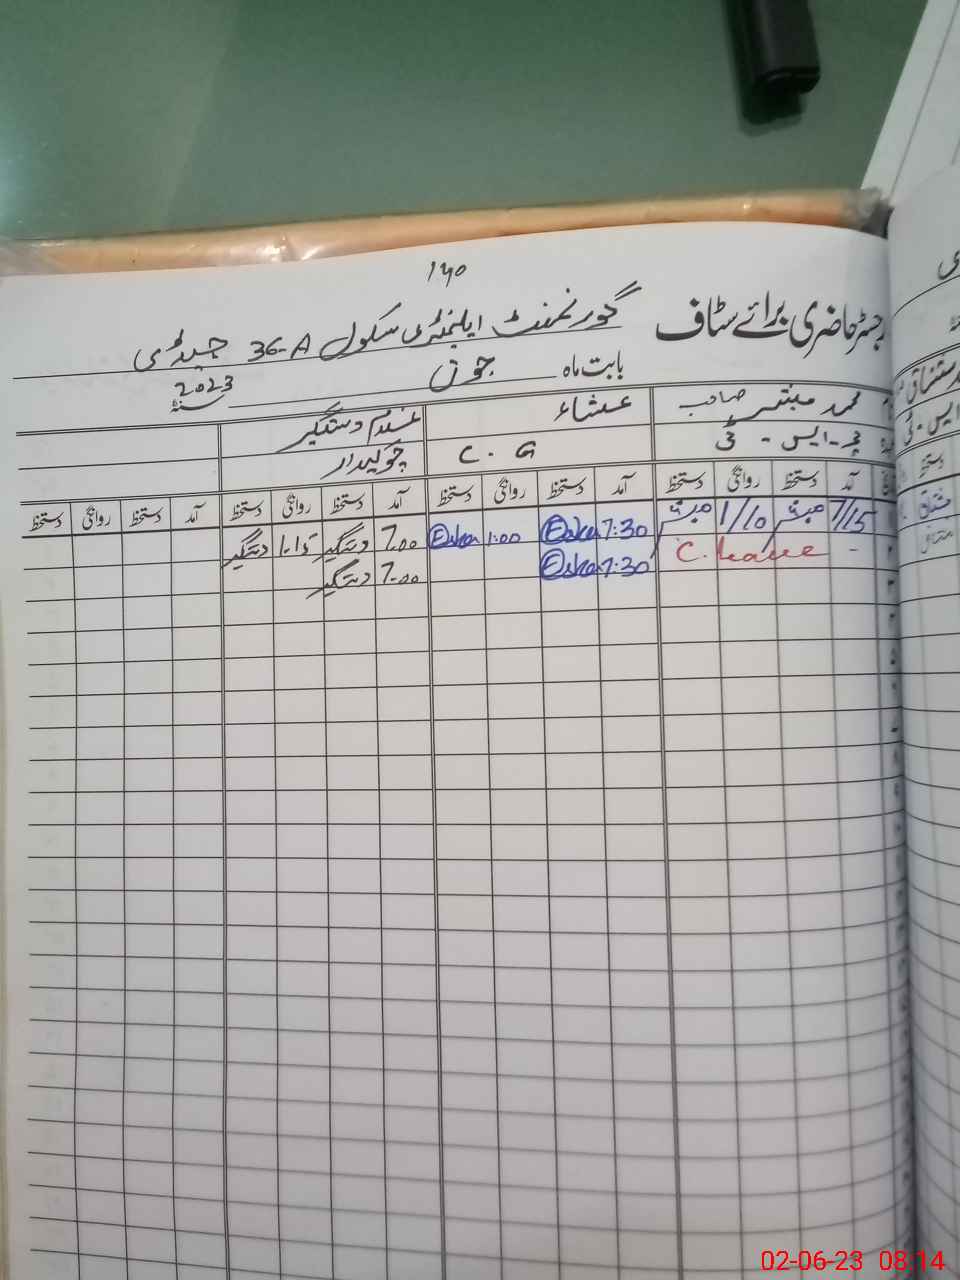 140
رجسٹر حاضری برائے سٹاف گورنمنٹ ایلیمنٹری سکول 36-A جیدئی
بابت ماہ جون سنہ 2023
محمد مبشر صاحب عشاء غلام دستگیر
پی-ایس-ٹی C. G چوکیدار
آمد دستخط روانگی دستخط آمد دستخط روانگی دستخط آمد دستخط روانگی دستخط آمد دستخط روانگی دستخط
7/15 مبشر 1/10 مبشر 7:30 Esha 1:00 Esha 7.00 دستگیر دستگیر
- C. Leave 7:30 Esha 7.00 دستگیر
02-06-23 08:14